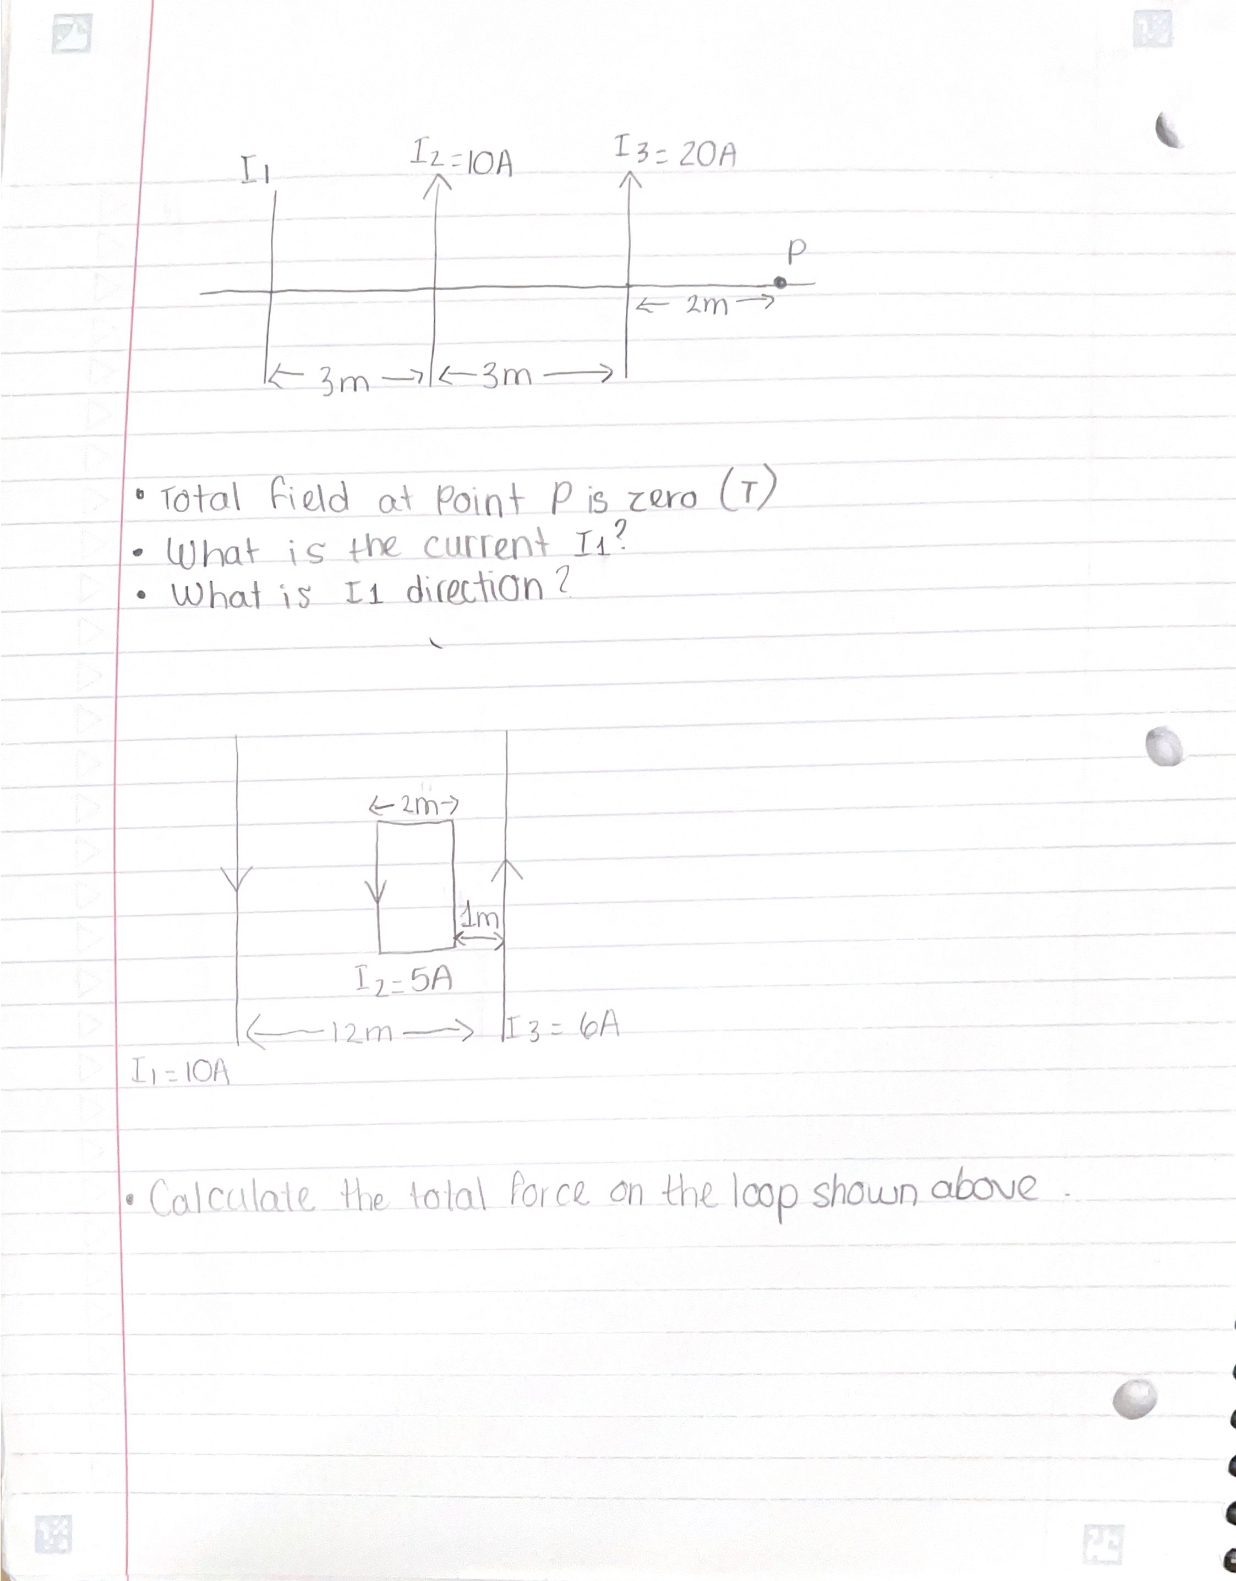 I1
I2=10A
I3=20A
P
2m
3m
3m
• Total field at Point P is zero (T)
• What is the current I1?
• What is I1 direction?
2m
1m
I2=5A
12m
I3=6A
I1=10A
• Calculate the total force on the loop shown above.